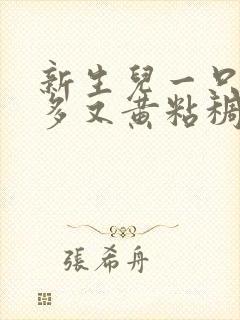 新生兒一口
多又黃粘稠
張希舟